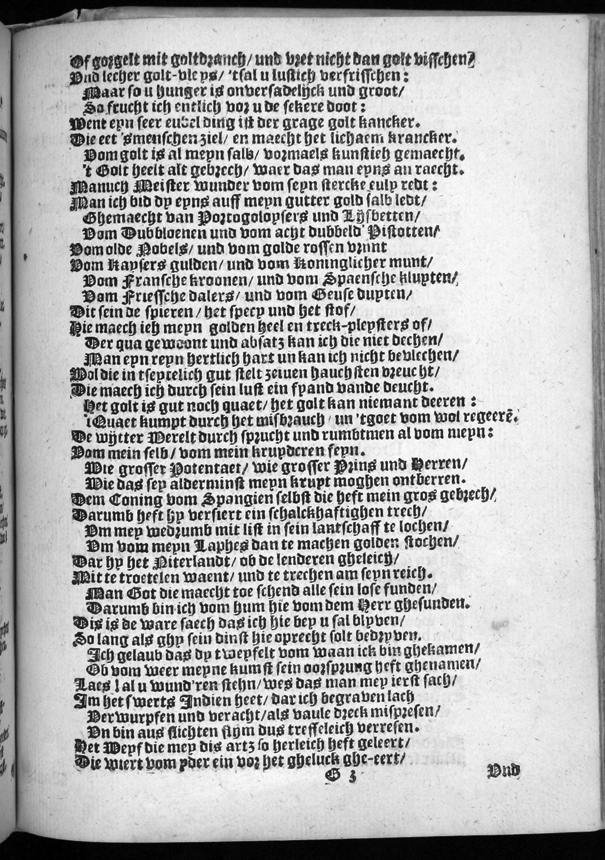 Of gorgelt mit goltdranch/ und vret nicht dan golt visschen/
Und lecher golt-vleys/ 'tsal u lustich verfrisschen:
Maar so u hunger is onversadelijck und groot/
So frucht ich entlich vor u de sekere doot:
Went eyn seer eubel ding ist der grage golt kancker.
Die eet 'smenschen ziel/ en maecht het lichaem krancker.
Vom golt is al meyn salb/ vormaels kunstich gemaecht.
't Golt heelt alt gebrech/ waer das man eyns an raecht.
Manuch Meister wunder vom seyn stercke eulp redt:
Man ich bid dy eyns auff meyn gutter gold salb ledt/
Ghemaecht van Portogoloysers und Lijsbetten/
Vom Dubbloenen und vom acht dubbeld Pistotten/
Vom olde Nobels/ und vom golde rossen vrunt
Vom Kaysers gulden/ und vom Koninglicher munt/
Vom Fransche kroonen/ und vom Spaensche kluyten/
Vom Friessche dalers/ und vom Geuse duyten/
Dit sein de spieren/ het specy und het stof/
Hie maech ieh meyn golden heel en treck-pleysters of/
Der qua gewoont und absatz kan ich die niet dechen/
Man eyn reyn hertlich hart un kan ich nicht bevlechen/
Wol die in tseytelich gut stelt zeiuen hauchsten vreucht/
Die maech ich durch sein lust ein fyand vande deucht.
Het golt is gut noch quaet/ het golt kan niemant deeren:
't Quaet kumpt durch het misbrauch/ un 'tgoet vom wol regeerē.
De wijtter Werelt durch sprucht und rumbtmen al vom meyn:
Vom mein selb/ vom mein kruyderen feyn.
Wie grosser Potentaet/ wie grosser Prins und Herren/
Wie das sey alderminst meyn kruyt moghen ontberren.
Dem Coning vom Spangien selbst die heft mein gros gebrech/
Darumb heft hy versiert ein schalckhaftighen trech/
Um mey wedrumb mit list in sein lantschaff te lochen/
Um vom meyn Laphes dan te machen golden stochen/
Dar hy het Niterlandt/ ob de lenderen gheleich/
Mit te troetelen waent/ und te trechen am seyn reich.
Man Got die maecht toe schend alle sein lose funden/
Darumb bin ich vom hum hie vom dem Herr ghesunden.
Dis is de ware saech das ich hie bey u sal blyven/
So lang als ghy sein dinst hie oprecht solt bedryven.
Ich gelaub das dy tweyfelt vom waan ick bin ghekamen/
Ob vom weer meyne kumst sein oorsprung heft ghenamen/
Laes! al u wund'ren stehn/ wes das man mey ierst sach/
Im het swerts Indien heet/ dar ich begraven lach
Verwurpfen und veracht/ als vaule dreck mispresen/
Un bin aus slichten slijm dus treffeleich verresen.
Het Weyf die mey dis artz so herleich heft geleert/
Die wiert vom yder ein vor het gheluck ghe-eert/
G 3
Und